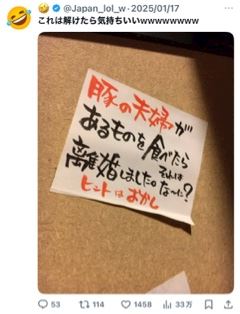 @Japan_lol_w · 2025/01/17
これは解けたら気持ちいいwwwwwwww
豚の夫婦が
あるものを食べたら
それは
離婚しました。な〜に?
ヒントはおかし
53 114 1458 33万